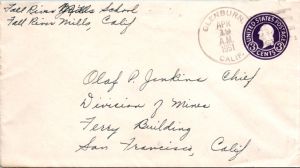 Fall River Mills School
Fall River Mills, Calif
GLENBURN
APR
A.M.
1951
CALIF.
UNITED STATES POSTAGE
3 CENTS 3
Olaf P. Jenkins Chief
Division of Mines
Ferry Building
San Francisco, Calif